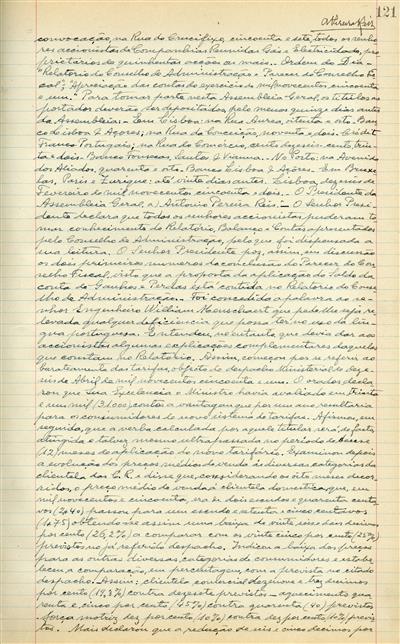 121
A Pereira Reis
convocação, na Rua do Crucifixo, cincoenta e sete, todos os senho-
res accionistas das Companhias Reunidas Gás e Electricidade, pro-
prietários de quinhentas acções ou mais. Ordem do Dia
"Relatório do Conselho de Administração e Parecer do Conselho Fis-
cal"; "Apreciação das contas do exercício de mil novecentos cincoenta
e um". Para tomar parte nesta Assembleia Geral, os títulos ao
portador deverão ser depositados pelo menos quinze dias antes
da Assembleia: Em Lisboa: na Rua Aurea, oitenta e oito, Ban-
co Lisboa & Açores; na Rua da Conceição, noventa e dois, Crédit
Franco Portugais; na Rua do Comercio, cento dezeseis-cento trin-
ta e dois-Banco Fonsecas, Santos & Vianna. No Porto: na Avenida
dos Aliados, quarenta e oito, Banco Lisboa & Açores. Em Bruxe-
las, Paris e Zurique: até vinte dias antes. Lisboa, dezeseis de
Fevereiro de mil novecentos cincoenta e dois. O Presidente da
Assembleia Geral, a) Antonio Pereira Reis. O Senhor Presi-
dente declara que todos os senhores accionistas puderam to-
mar conhecimento do Relatório, Balanço e Contas apresentados
pelo Conselho de Administração, pelo que foi dispensada a
sua leitura. O Senhor Presidente poz, assim, em discussão
os dois primeiros numeros da conclusão do Parecer do Con-
selho Fiscal, visto que a proposta da aplicação do Saldo da
conta de Ganhos e Perdas está contida no Relatorio do Conse-
lho de Administração. Foi concedida a palavra ao se-
nhor Engenheiro William Hauschaert que pede lhe seja re-
levada qualquer deficiencia que possa ter no uso da lin-
gua portuguesa. Entendeu, no entanto, que devia dar aos
accionistas algumas explicações complementares daquelas
que constam no Relatório. Assim, começou por se referir ao
barateamento das tarifas, objecto do despacho Ministerial de deze-
seis de Abril de mil novecentos cincoenta e um. O orador decla-
rou que Sua Excelencia o Ministro havia avaliado em trinta
e um mil (31.000) contos a vantagem que por um ano resultaria
para os consumidores do novo sistema de tarifas. Afirma, em
seguida, que a verba calculada por aquele titular será, de facto,
atingida e talvez mesmo ultrapassada no periodo de doze
(12) meses de aplicação do novo tarifário. Examinou depois
a evolução dos preços médios de venda às diversas categorias da
clientela das C.R. e disse que, considerando os oito meses decor-
ridos, o preço médio de venda à clientela domestica, que, em
mil novecentos e cincoenta, era de dois escudos e quarenta centa-
vos (2$40) passou para um escudo e setenta e cinco centavos
(1$75) obtendo-se assim uma baixa de vinte seis e dois decimos
por cento (26,2%) a comparar com os vinte cinco por cento (25%)
previstos no já referido despacho. Indica a baixa dos preços
para as outras diversas categorias de consumidores e estabe-
lecem a comparação, em percentagem, com a prevista no citado
despacho. Assim: clientela comercial dezenove e tres decimos
por cento (19,3%) contra dezeseis previstos - aquecimento qua-
renta e cinco por cento (45%) contra quarenta (40) previstos
força motriz, dez por cento (10%) contra dez por cento (10%) previs-
tos. Mais declarou que a redução de seis e cinco decimos por